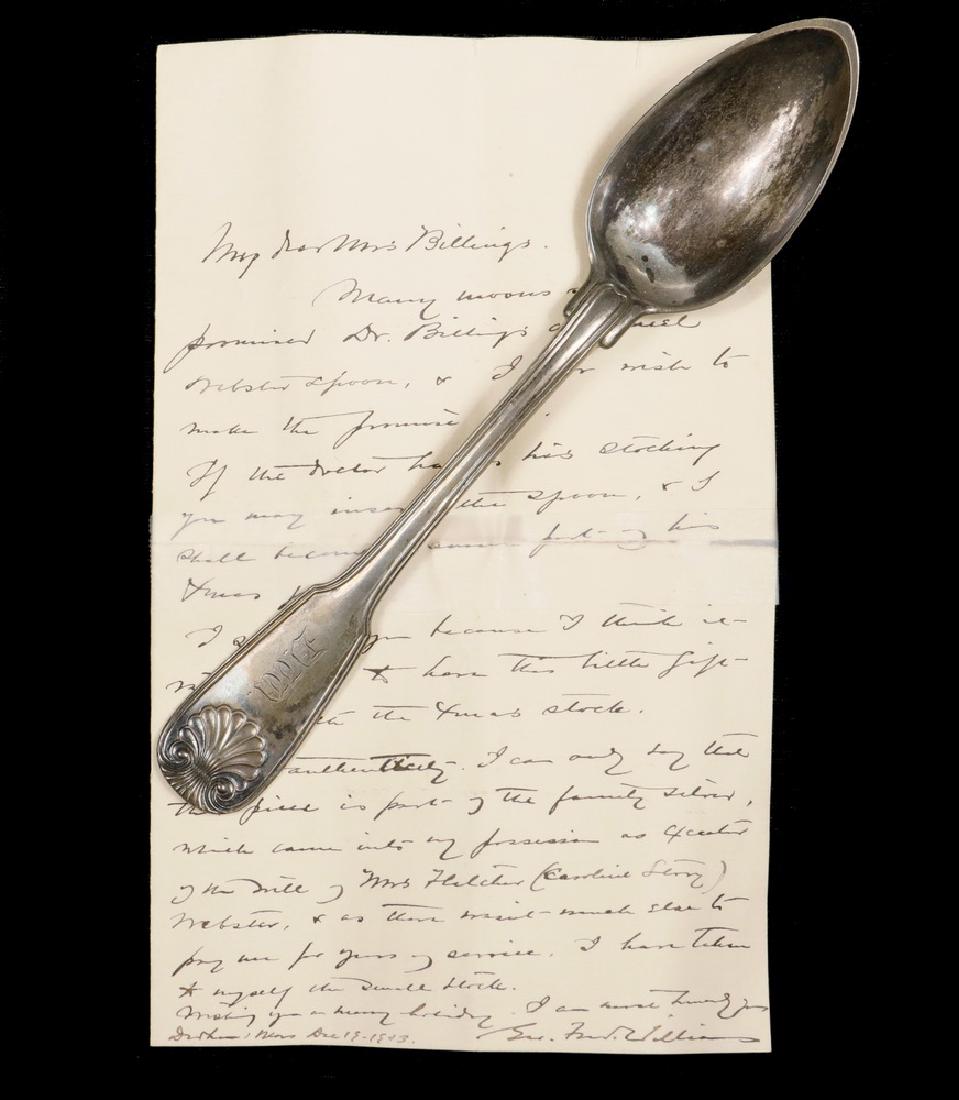 My dear Mrs Billings.
Many moons
promised Dr. Billings a
Webster spoon, & I wish to
make the promise
If the doctor has his stocking
you may insert the spoon, & I
shall become part of his
Xmas
I you because I think it
to have this little gift
the Xmas stock.
authenticity. I can only say that
the piece is part of the family silver,
which came into my possession as executor
of the will of Mrs Fletcher (Caroline Story)
Webster, & as there wasn't much else to
pay me for years of service. I have taken
to myself the small stock.
Wishing you a merry holiday. I am most sincerely yours
Dedham, Mass Dec 19-1913. Geo. Fred. Williams